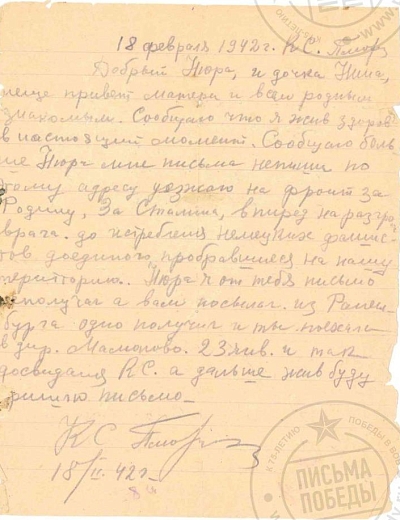 18 февраль 1942 г. К С.
Добрый Нюра, и дочка Нина,
еще привет матери и всем родным
знакомым. Сообщаю что я жив здоров
в настоящий момент. Сообщаю боль
ше Нюра мне письма непиши по
этому адресу уезжаю на фронт за
Родину, За Сталина, вперед на разгро
врага. до истребления немецких фашис
тов доединого пробравшиеся на нашу
территорию. Нюра я от тебя письмо
получал а вам посылал. из
бурга одно получил и ты поехала
в дир. Мамоново. 23 янв. и так
досвидания К С. а дальше жив буду
пришлю письмо
К С
18/II. 42 г.
К 75-ЛЕТИЮ ПОБЕДЫ В ВОВ
ПИСЬМА
ПОБЕДЫ